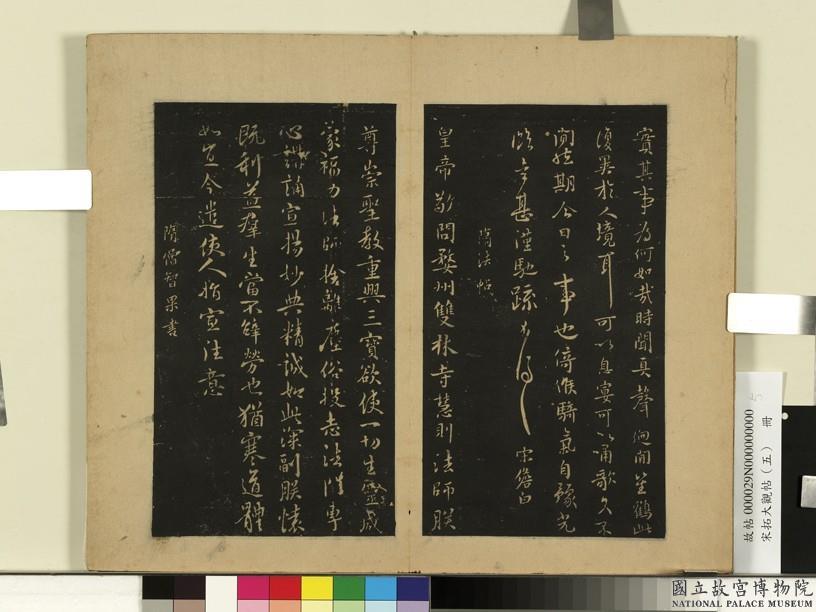 實其事為何如哉時聞真聲
復罷於人境耳可以息宴可以誦歌久不
期今日之事也倚候騎氣自
臨辛甚謹馳疏
宋儋白
隋法帖
皇帝敬問婺州雙林寺慧則法師朕
尊崇聖教重興三寶欲使一切生靈咸
蒙福力法師捨離塵俗投志法門專
心講誦宣揚妙典精誠如此深副朕懷
既利益群生當不辭勞也猶寒道體
如宜今遣使人指宣往意
隋僧智果書
故帖 000029N000000000
宋拓大觀帖(五) 冊
國立故宮博物院
NATIONAL PALACE MUSEUM